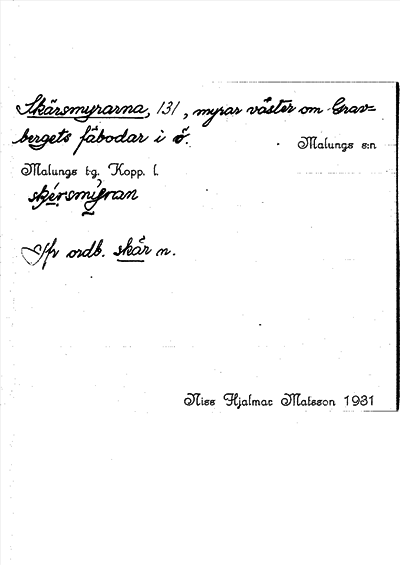 Skärsmyrarna, 131, myrar väster om Grav=
bergets fäbodar i ö.
Malungs s:n
Malungs t:g. Kopp. l.
skérsmỳran
Jfr ordb. skär n.
Niss Hjalmar Matsson 1931